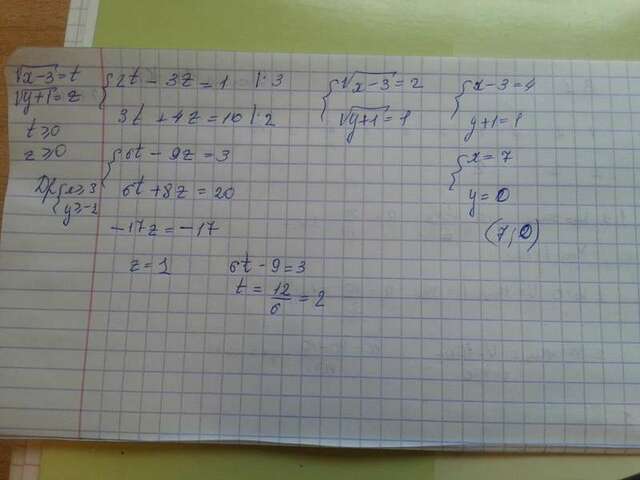 √x-3 = t
√y+1 = z
t ≥ 0
z ≥ 0
{ x ≥ 3
y ≥ -1
{ 2t - 3z = 1 |·3
3t + 4z = 10 |·2
{ 6t - 9z = 3
6t + 8z = 20
-17z = -17
z = 1
6t - 9 = 3
t = 12/6 = 2
{ √x-3 = 2
√y+1 = 1
{ x-3 = 4
y+1 = 1
{ x = 7
y = 0
(7; 0)